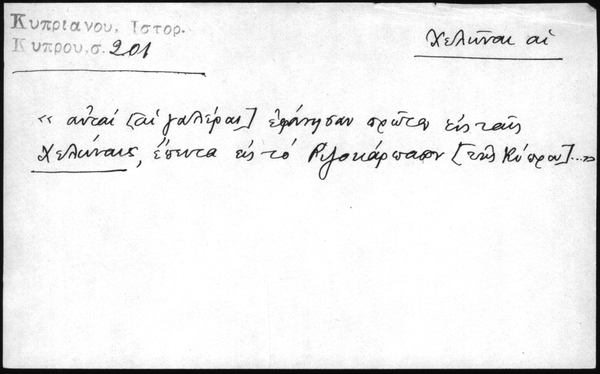 Κυπριανού, Ιστορ.
Κύπρου, σ. 201
Χελῶναι αἱ
« αὗται [αἱ γαλέραι] ἐφάνησαν πρῶτον εἰς ταῖς
Χελώναις, ἔπειτα εἰς τὸ Ριζοκάρπασον [τῆς Κύπρου]...»